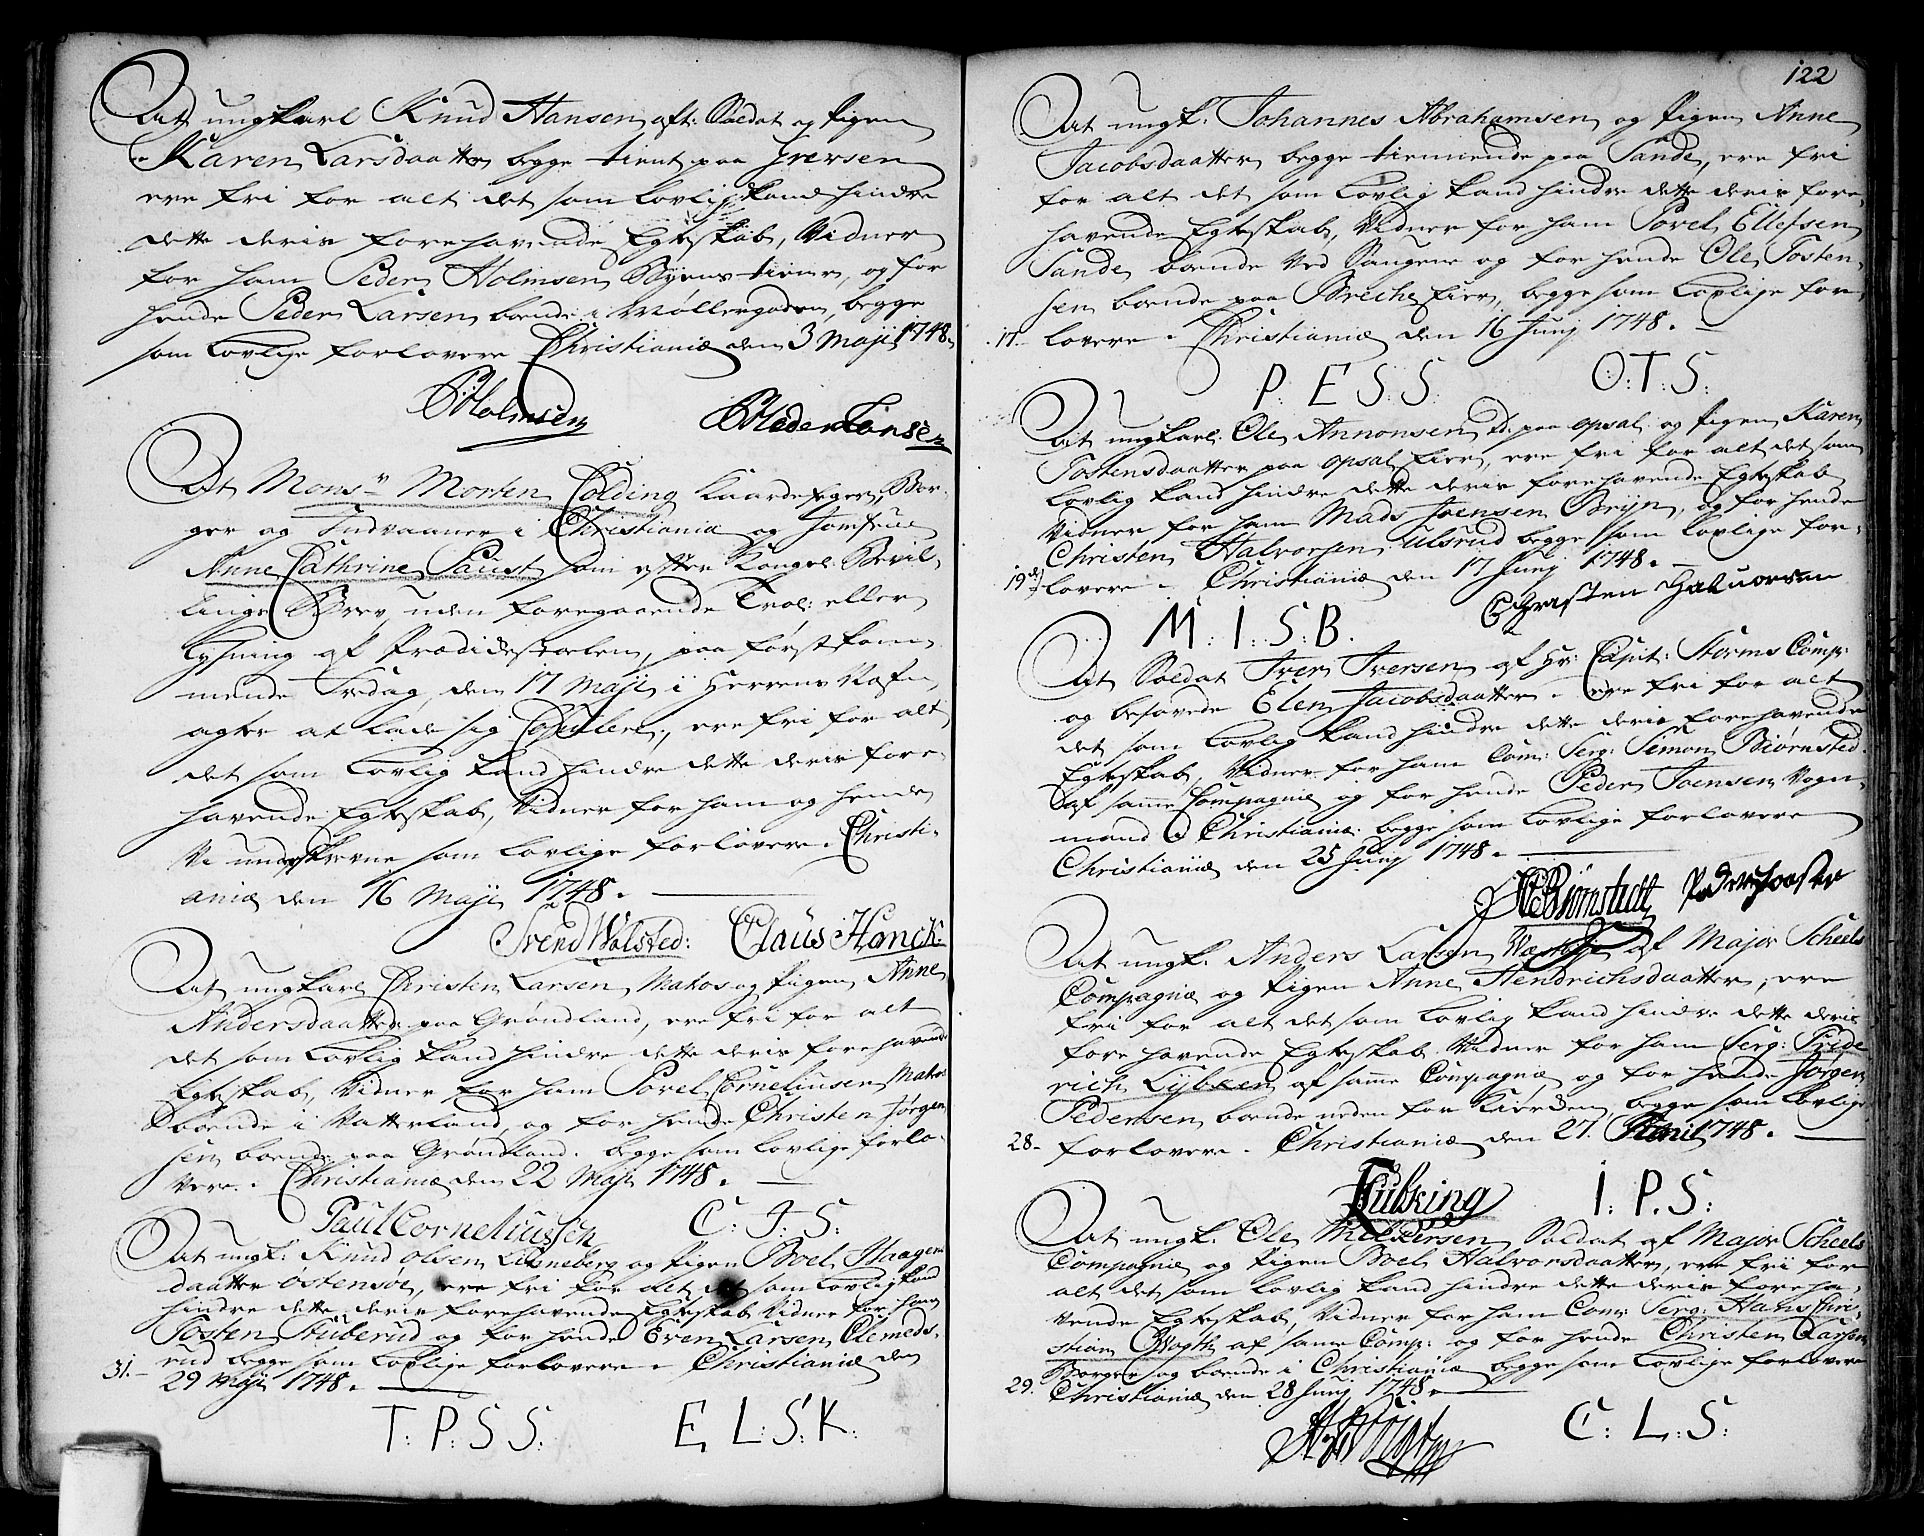 At ungkarl Knud Hansen aft: Soldat og Pigen
Karen Larsdaatter begge tient paa Grersen
ere fri for alt det som lovlig kand hindre
dette deris forehavende Egteskab, Vidner
for ham Peder Holmsen Byens tiener, og for
hende Peder Larsen boende i Møllergaden, begge
som lovlige forlovere Christianiæ den 3 Maji 1748.
PHolmsen Peder Larsen
At Monsr Morten Colding Kaardefeger, Bor-
ger og Indvaaner i Christiania og Jomfrue
Anne Cathrine Paust, som efter Kongel: Bevil-
lings Brev, uden foregaaende Trol: eller
lysning af Prædickestoelen, paa førstkom-
mende Fredag, den 17 Maji i Herrens Nafn,
agter at lade sig Copulere, ere fri for alt
det som lovlig kand hindre dette deris fore-
havende Egteskab, Vidner for ham og hende
Vi underskrevne som lovlige forlovere. Christi-
aniæ den 16 Maji 1748.
Svend Wolsted: Claus Hanck
At ungkarl Christen Larsen Matros og Pigen Anne
Andersdaatter paa Grønland, ere fri for alt
det som lovlig kand hindre dette deris forehavende
Egteskab, Vidner for ham Povel Corneliusen Matros
boende i Vatterland, og for hende Christen Jørgen-
sen boende paa Grønland. begge som lovlige forlo-
vere. Christianiæ den 22 Maji 1748.
Paul Corneliussen C: J: S:
At ungk: Knud Olsen og Pigen Boel Haagens
daatter Østensøe, ere fri for alt det som lovlig kand
hindre dette deris forehavende Egteskab Vidner for ham
Tosten Stuberud og for hende Even Larsen Clemeds-
rud begge som lovlige forlovere. Christianiæ den
31.- 29 Maji 1748.
T: P: S S: E L: S: K.
122
At ungk: Johannes Abrahamsen og Pigen Anne
Jacobsdaatter begge tienniende paa Sande, ere fri
for alt det som lovlig kand hindre dette deris fore-
havende Egteskab, Vidner for ham Povel Ellefsen
Sande, boende ved Saugene og for hende Ole Tosten-
sen boende paa Breche Eier, begge som lovlige for-
17.- lovere. Christianiæ den 16 Junj 1748.
P: E S: S. O: T: S:
At ungkarl: Ole Annonsen paa Opsal og Pigen Karen
Tostensdaatter paa Opsal Eier, ere fri for alt det som
lovlig kand hindre dette deris forehavende Egteskab
Vidner for ham Mads Joensen Bryn, og for hende
Christen Halvorsen Ulsrud begge som lovlige for-
19de lovere. Christianiæ den 17 Junj 1748.
M: I: S: B. Christen Haluorsen
At Soldat Iver Iversen af Hr: Capit: Storms Comp:
og besovede Elen Jacobsdaatter. ere fri for alt
det som lovlig kand hindre dette deris forehavende
Egteskab, Vidner for ham Com: Serg: Simon Biørnsted
af samme Compagnie og for hende Peder Joensen Vogn-
mand i Christiania. begge som lovlige forlovere
Christianiæ den 25 Junj 1748.
Biørnstedt
At ungk: Anders Larsen af Major Scheels
Compagnie og Pigen Anne Hendrichsdaatter, ere
fri for alt det som lovlig kand hindre dette deris
forehavende Egteskab Vidner for ham Serg: Fride
rich Lybken af samme Compagnie og for hende Jørgen
Pedersen boende neden for Kiørden begge som lovlige
28- forlovere. Christianiæ den 27. Junii 1748.
I. P. S:
At ungk: Ole Soldat af Major Scheels
Compagnie og Pigen Boel Halvorsdaatter, ere fri for
alt det som lovlig kand hindre dette deris foreha-
vende Egteskab, Vidner for ham Com: Serg: Hans Chri-
stian af samme Comp: og for hende Christen Larsen
Borger og boende i Christiania begge som lovlige forlovere
29. Christianiæ den 28 Junj 1748.
C: L: S: